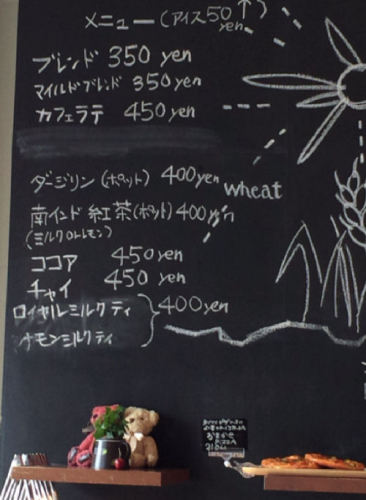 メニュー(アイス50yen↑)
ブレンド 350 yen
マイルドブレンド 350 yen
カフェラテ 450 yen
ダージリン(ポット) 400yen
wheat
南インド紅茶(ポット) 400yen
(ミルクorレモン)
ココア 450 yen
チャイ 450 yen
ロイヤルミルクティ 400yen
シナモンミルクティ
おまかせ
PIZZA